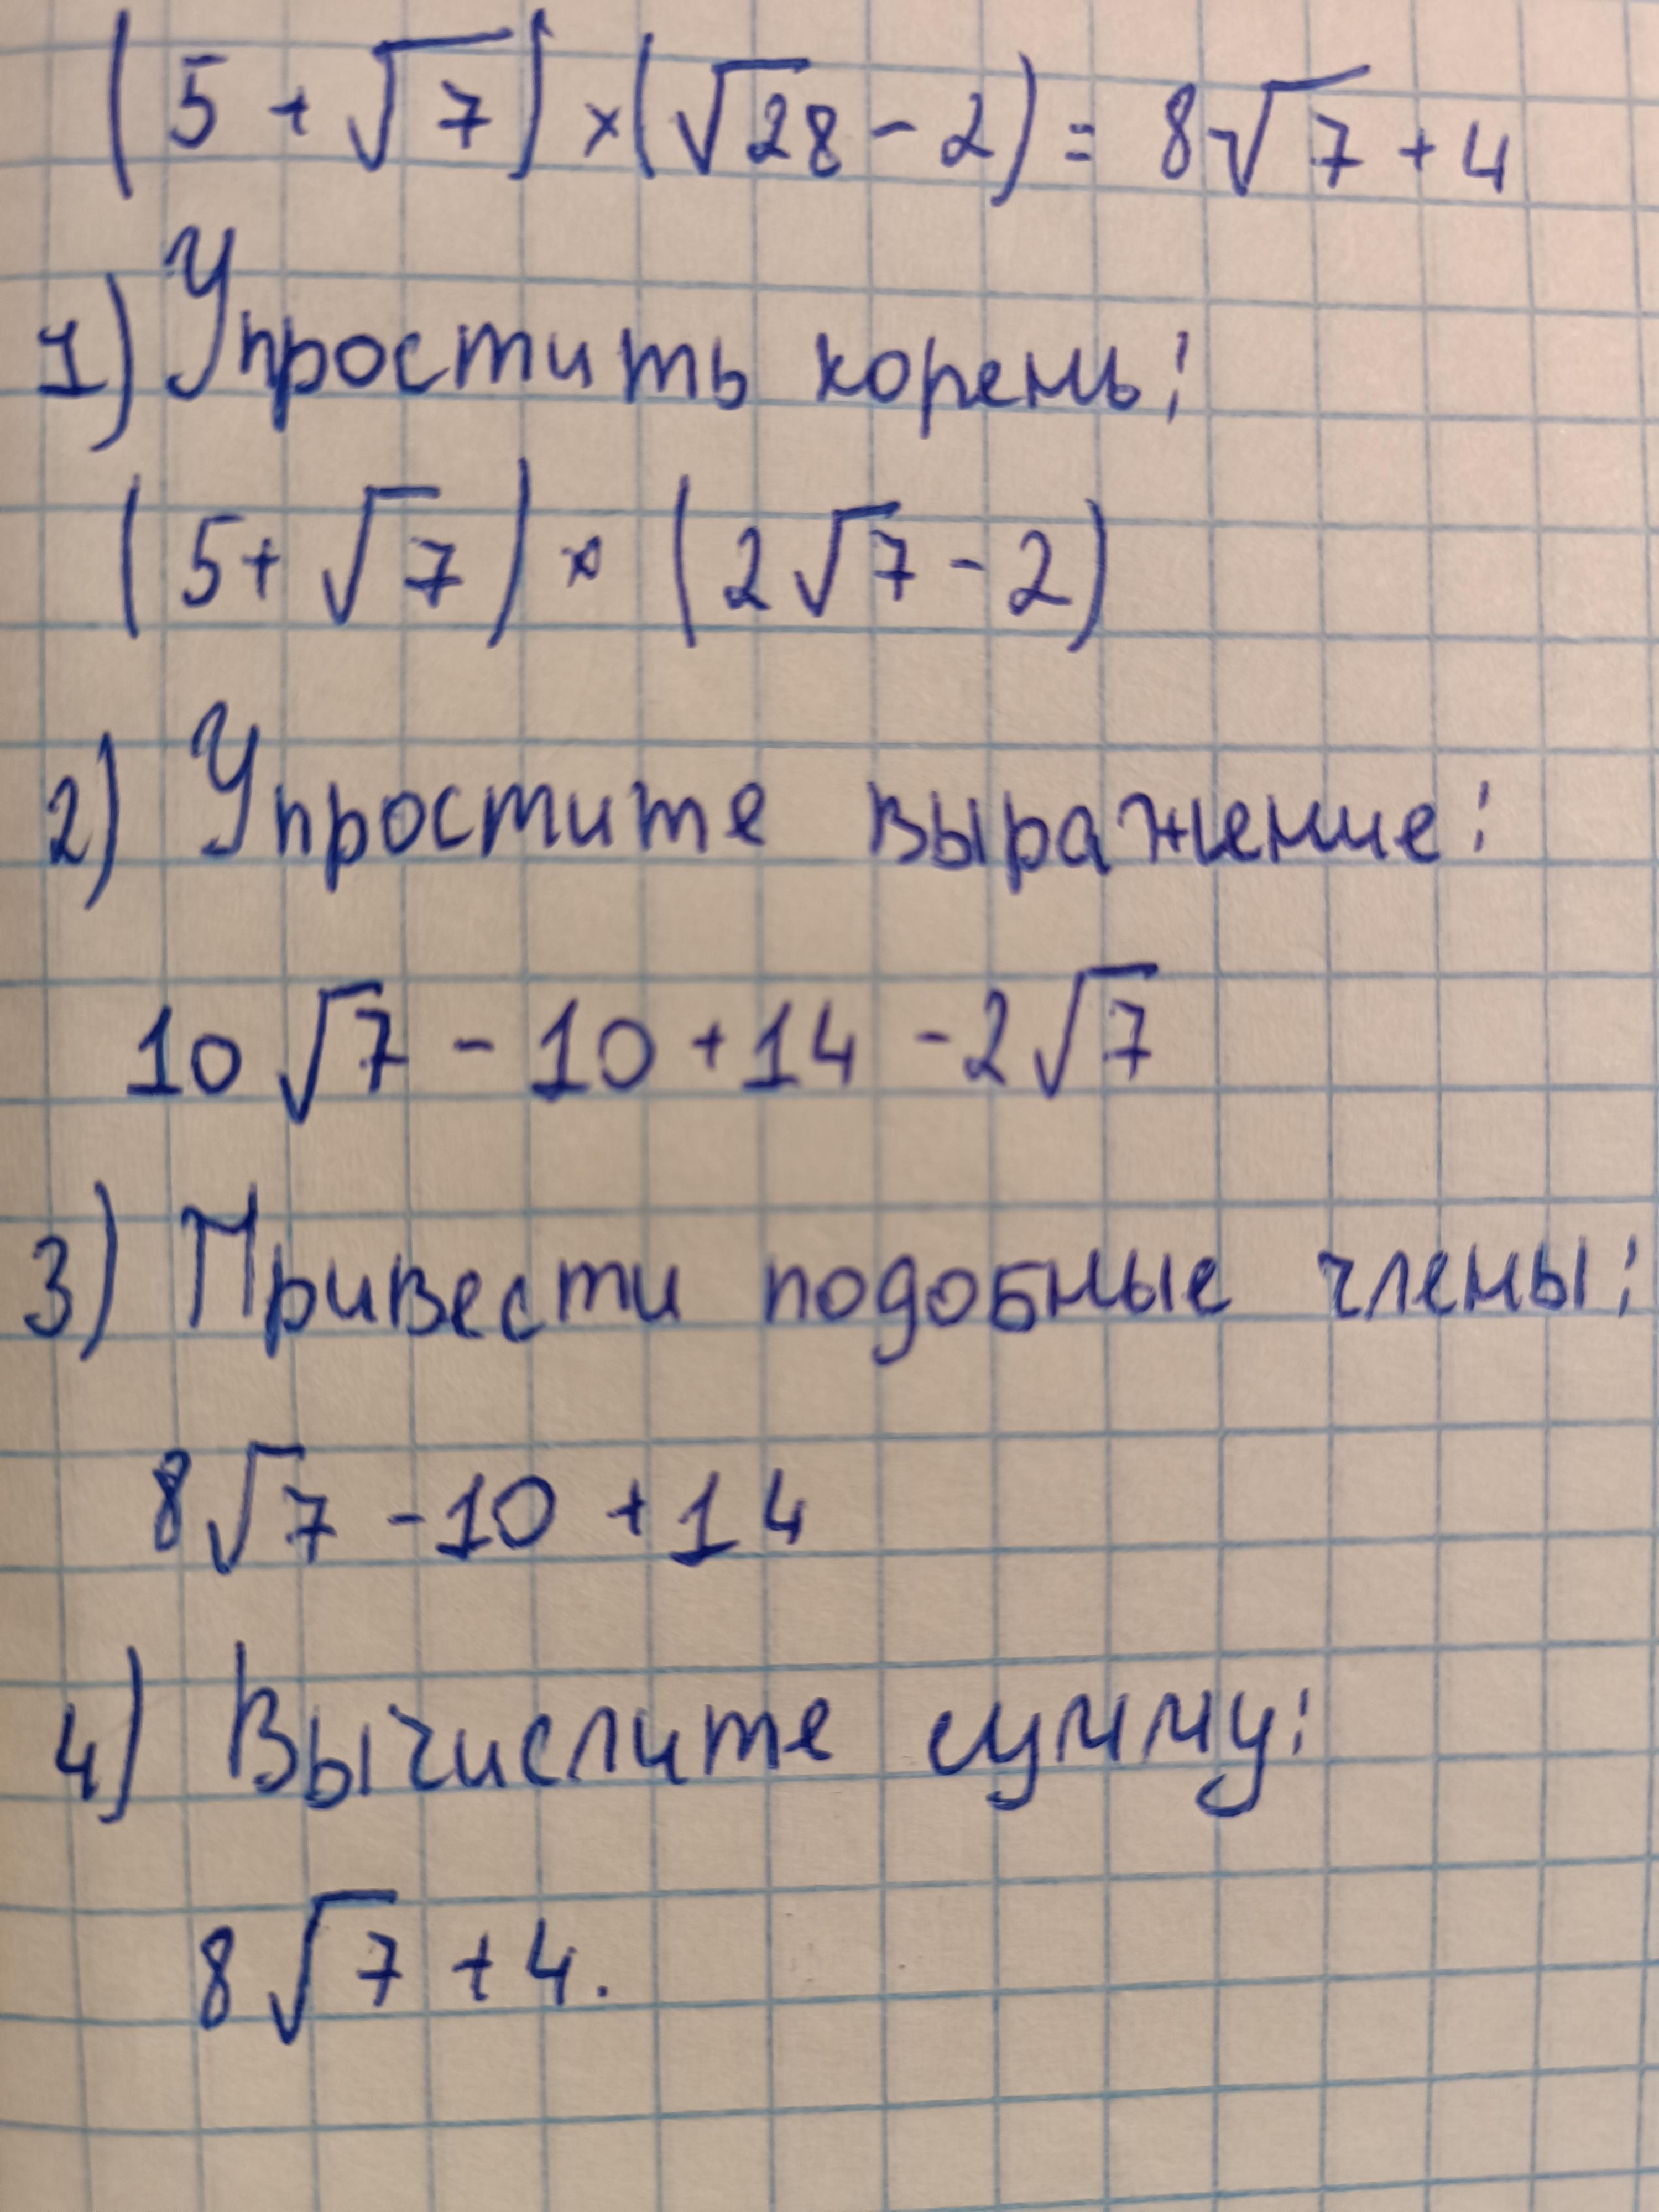 (5 + √7) × (√28 - 2) = 8√7 + 4
1) Упростить корень:
(5 + √7) × (2√7 - 2)
2) Упростите выражение:
10√7 - 10 + 14 - 2√7
3) Привести подобные члены:
8√7 - 10 + 14
4) Вычислите сумму:
8√7 + 4.